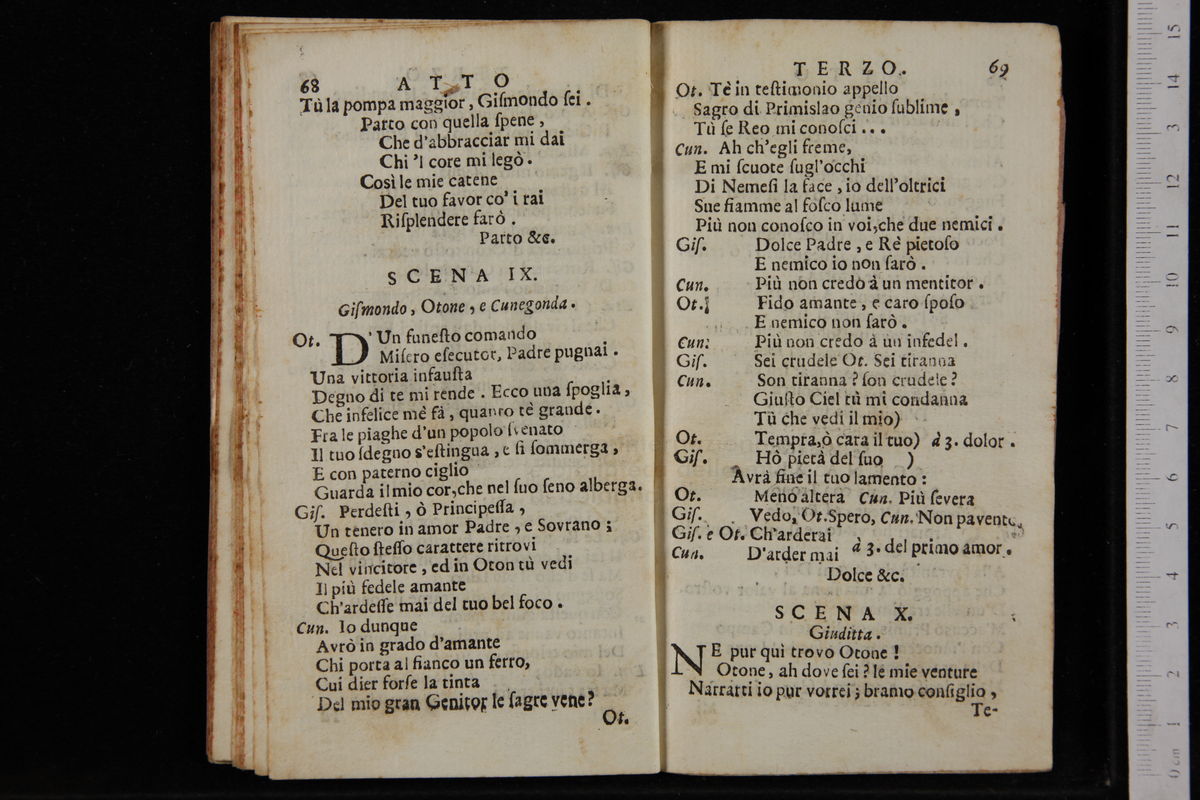 68 ATTO
Tù la pompa maggior, Giſmondo ſei.
Parto con quella ſpene,
Che d'abbracciar mi dai
Chi 'l core mi legò.
Così le mie catene
Del tuo favor co' i rai
Riſplendere farò.
Parto &c.
SCENA IX.
Giſmondo, Otone, e Cunegonda.
Ot. D'Un funeſto comando
Miſero eſecutor, Padre pugnai.
Una vittoria infauſta
Degno di te mi rende. Ecco una ſpoglia,
Che infelice mè fà, quanto tè grande.
Fra le piaghe d'un popolo ſvenato
Il tuo ſdegno s'eſtingua, e ſi ſommerga,
E con paterno ciglio
Guarda il mio cor, che nel ſuo ſeno alberga.
Giſ. Perdeſti, ò Principeſſa,
Un tenero in amor Padre, e Sovrano;
Queſto ſteſſo carattere ritrovi
Nel vincitore, ed in Oton tù vedi
Il più fedele amante
Ch'ardeſſe mai del tuo bel foco.
Cun. Io dunque
Avrò in grado d'amante
Chi porta al fianco un ferro,
Cui dier forſe la tinta
Del mio gran Genitor le ſagre vene?
Ot.
TERZO. 69
Ot. Tè in teſtimonio appello
Sagro di Primislao genio ſublime,
Tù ſe Reo mi conoſci...
Cun. Ah ch'egli freme,
E mi ſcuote ſugl'occhi
Di Nemeſi la face, io dell'oltrici
Sue fiamme al foſco lume
Più non conoſco in voi, che due nemici.
Giſ. Dolce Padre, e Rè pietoſo
E nemico io non farò.
Cun. Più non credo à un mentitor.
Ot. Fido amante, e caro ſpoſo
E nemico non ſarò.
Cun. Più non credo à un infedel.
Giſ. Sei crudele Ot. Sei tiranna
Cun. Son tiranna? ſon crudele?
Giuſto Ciel tù mi condanna
Tù che vedi il mio)
Ot. Tempra, ò cara il tuo) à 3. dolor.
Giſ. Hò pietà del ſuo )
Avrà fine il tuo lamento:
Ot. Meno altera Cun. Più ſevera
Giſ. Vedo, Ot. Spero, Cun. Non pavento,
Giſ. e Ot. Ch'arderai
Cun. D'arder mai à 3. del primo amor.
Dolce &c.
SCENA X.
Giuditta.
NE pur quì trovo Otone!
Otone, ah dove ſei? le mie venture
Narrarti io pur vorrei; bramo conſiglio,
Te-